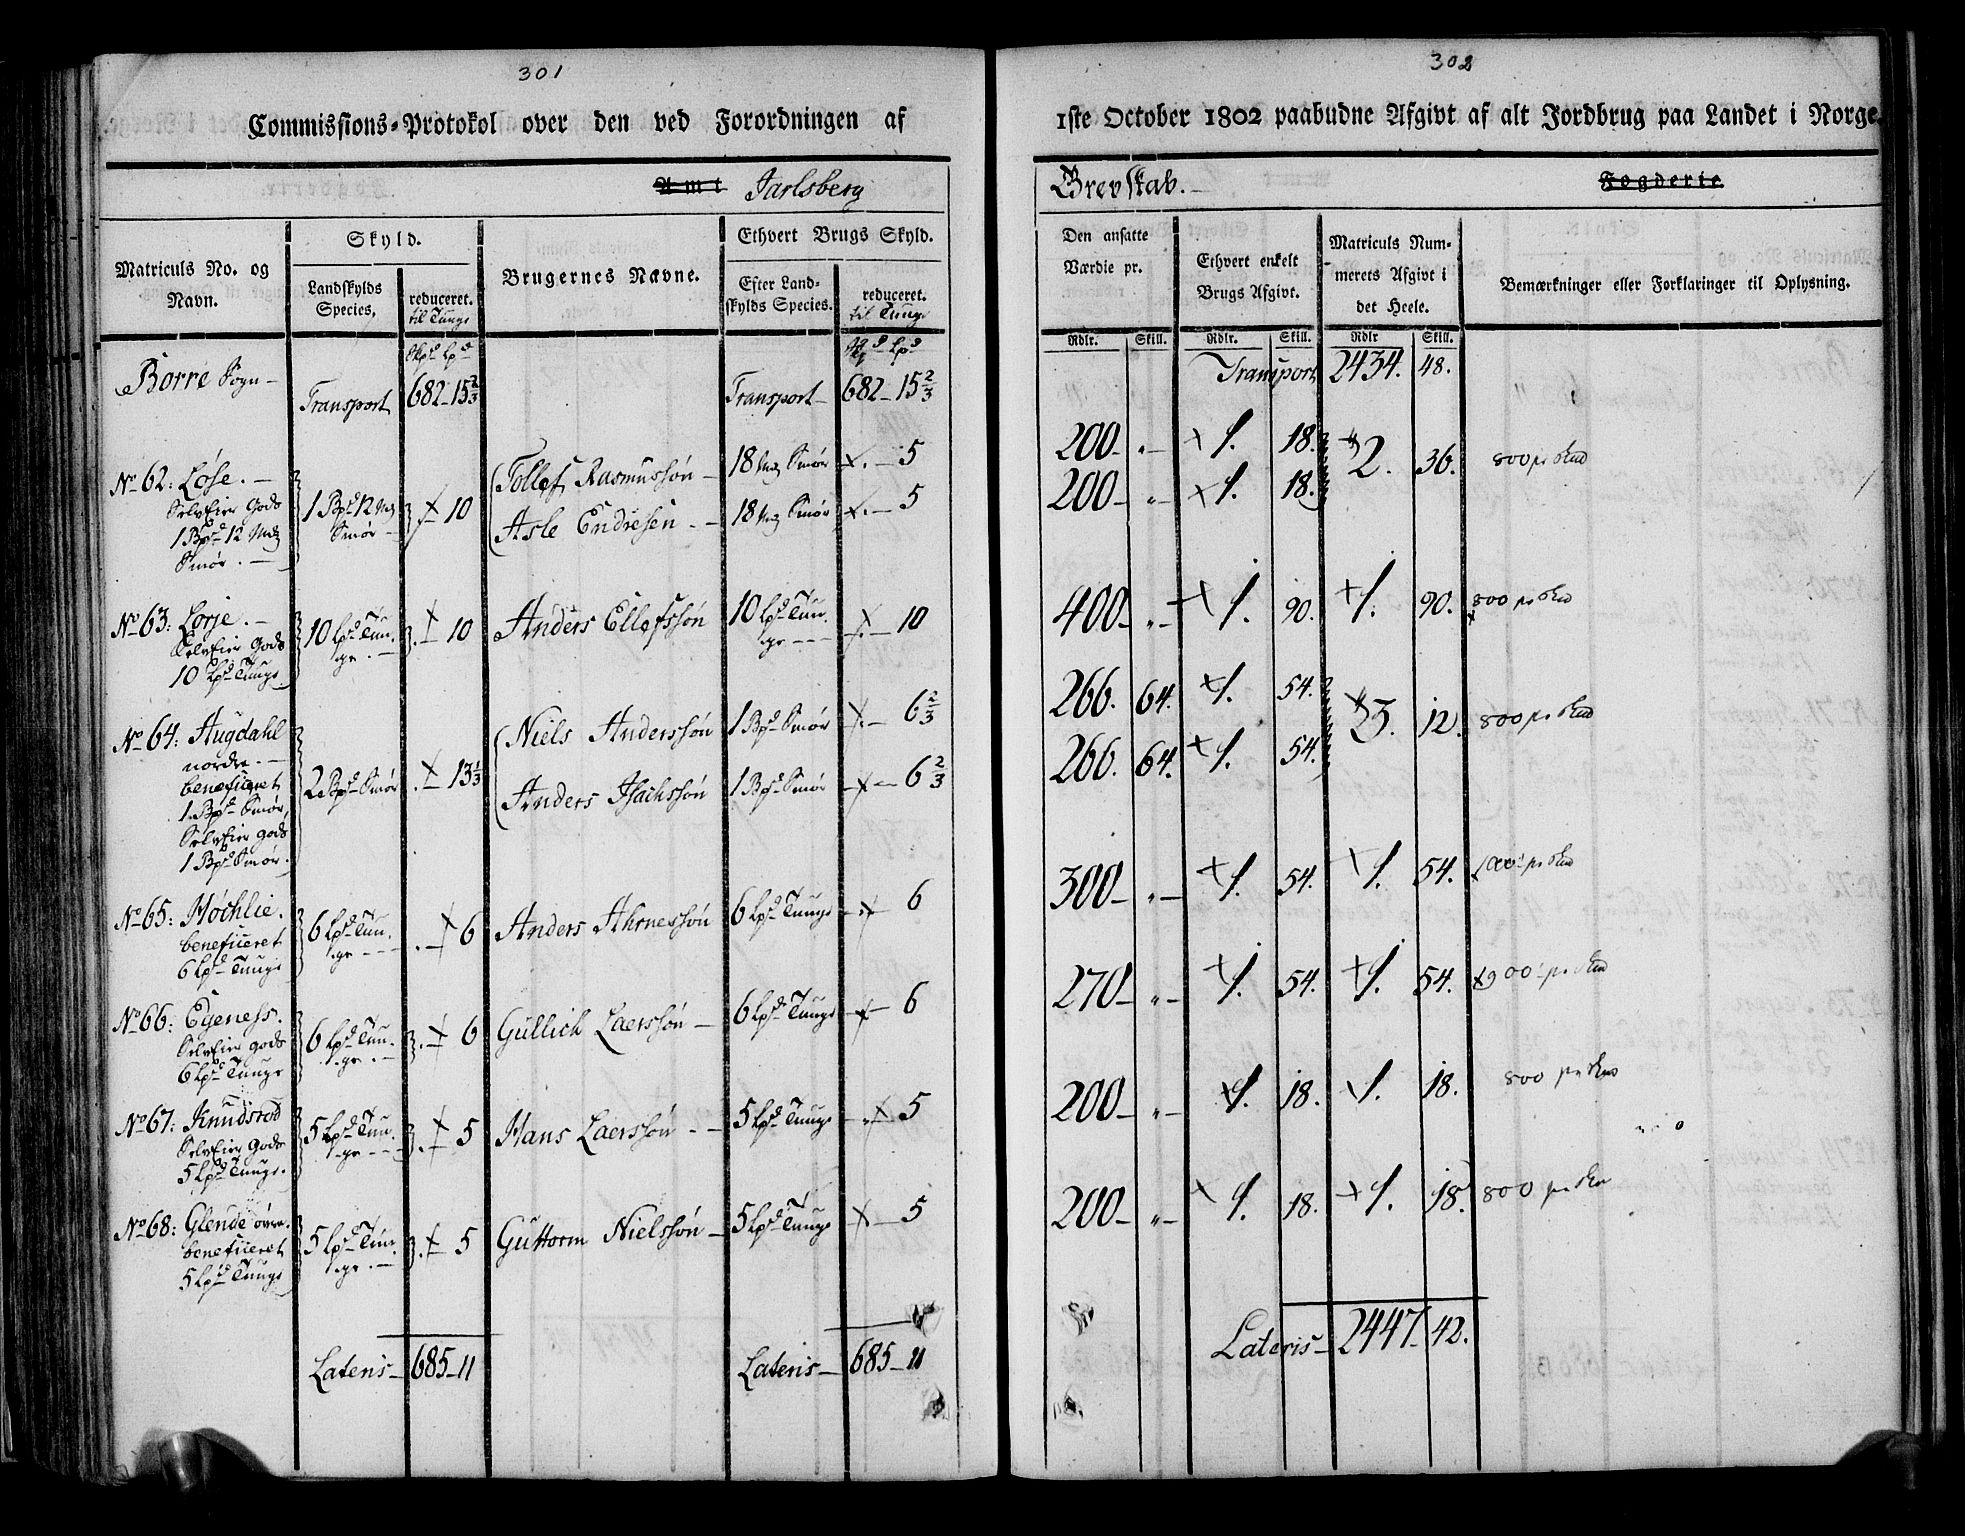 301
Commissions-Protokol over den ved Forordningen af
Amt Jarlsberg
Matriculs No. og Navn.
Skyld.
Landskylds Species,
reduceret. til Tunge
Brugernes Navne.
Ethvert Brugs Skyld.
Efter Landskylds Species.
reduceret. til Tunge
Borre Sogn - Transport 682-15 2/3 Transport - 682-15 2/3
No 62: Løse. - 1 Bpd 12 Mrk Smør 10 Tollef Rasmussøn - 18 Mrk Smør 5
Selveier Gods Asle Endresen. - 18 Mrk Smør 5
1 Bpd 12 Mrk
Smør. -
No 63: Lorje. - 10 Lpd Tunge 10 Anders Ellefssøn 10 Lpd Tunge 10
Selveier Gods
10 Lpd Tunge
No 64: Augdahl 2 Bpd Smør 13 1/3 Niels Anderssøn 1 Bpd Smør 6 2/3
nordre. - Anders Isachssøn 1 Bpd Smør 6 2/3
beneficeret
1 Bpd Smør,
Selveier Gods
1 Bpd Smør.
No 65: Høchlie. 6 Lpd Tunge 6 Anders Ahrnessøn 6 Lpd Tunge 6
beneficeret
6 Lpd Tunge
No 66: Egeness. 6 Lpd Tunge 6 Gullich Laerssøn - 6 Lpd Tunge 6
Selveier Gods
6 Lpd Tunge
No 67: Knudsrød 5 Lpd Tunge 5 Hans Laerssøn - 5 Lpd Tunge 5
Selveier Gods
5 Lpd Tunge.
No 68: Glende øvre. 5 Lpd Tunge 5 Guttorm Nielssøn - 5 Lpd Tunge 5
beneficeret
5 Lpd Tunge
Lateris - 685-11 Lateris - 685-11
302
1ste October 1802 paabudne Afgivt af alt Jordbrug paa Landet i Norge.
Grevskab. - Fogderie.
Den ansatte Værdie pr.
Ethvert enkelt Brugs Afgivt.
Matriculs Nummerets Afgivt i det Heele.
Bemærkninger eller Forklaringer til Oplysning.
Rdlr. Skill. Rdlr. Skill. Rdlr Skill.
Transport 2434. 48.
200 - " - 1. 18. 2. 36.
200 - " - 1. 18.
400 - " - 1. 90. 1. 90.
266. 64. 1. 54. 3. 12.
266. 64. 1. 54.
300 - " - 1. 54. 1. 54.
270 - " - 1. 54. 1. 54.
200 - " - 1. 18. 1. 18.
200 - " - 1. 18. 1. 18.
Lateris - 2447. 42.